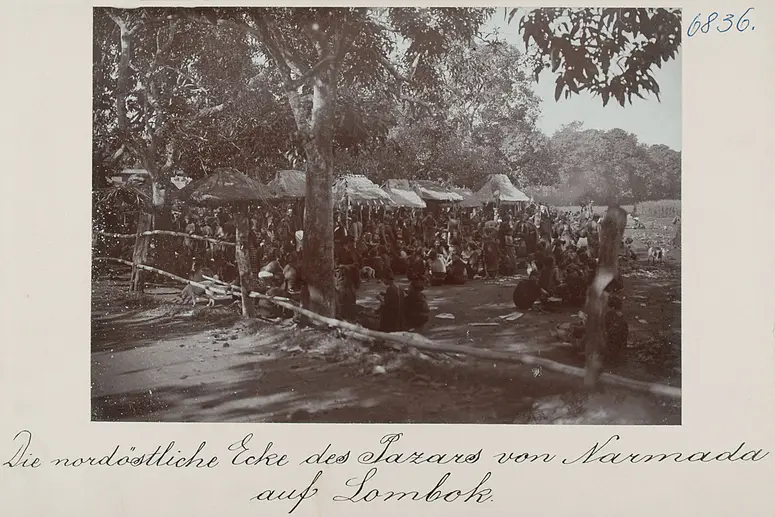 6836.
Die nordöstliche Ecke des Pazars von Narmada
auf Lombok.